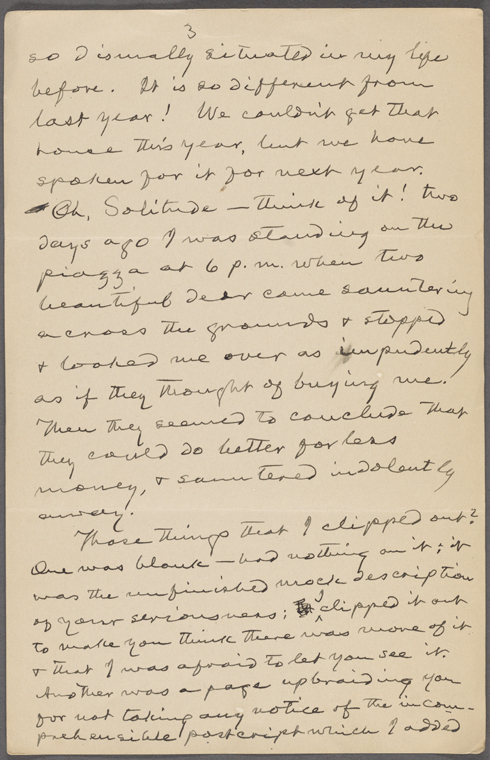 3
so dismally situated in my life
before. It is so different from
last year! We couldn't get that
house this year, but we have
spoken for it for next year.
Oh, Solitude — think of it! two
days ago I was standing on the
piazza at 6 p.m. when two
beautiful deer came sauntering
across the grounds & stopped
& looked me over as impudently
as if they thought of buying me.
Then they seemed to conclude that
they could do better for less
money, & sauntered indolently
away.
Those things that I clipped out?
One was blank — had nothing on it; it
was the unfinished mock description
of your seriousness; I clipped it out
to make you think there was more of it
& that I was afraid to let you see it.
Another was a page upbraiding you
for not taking any notice of the incom-
prehensible postcript which I added